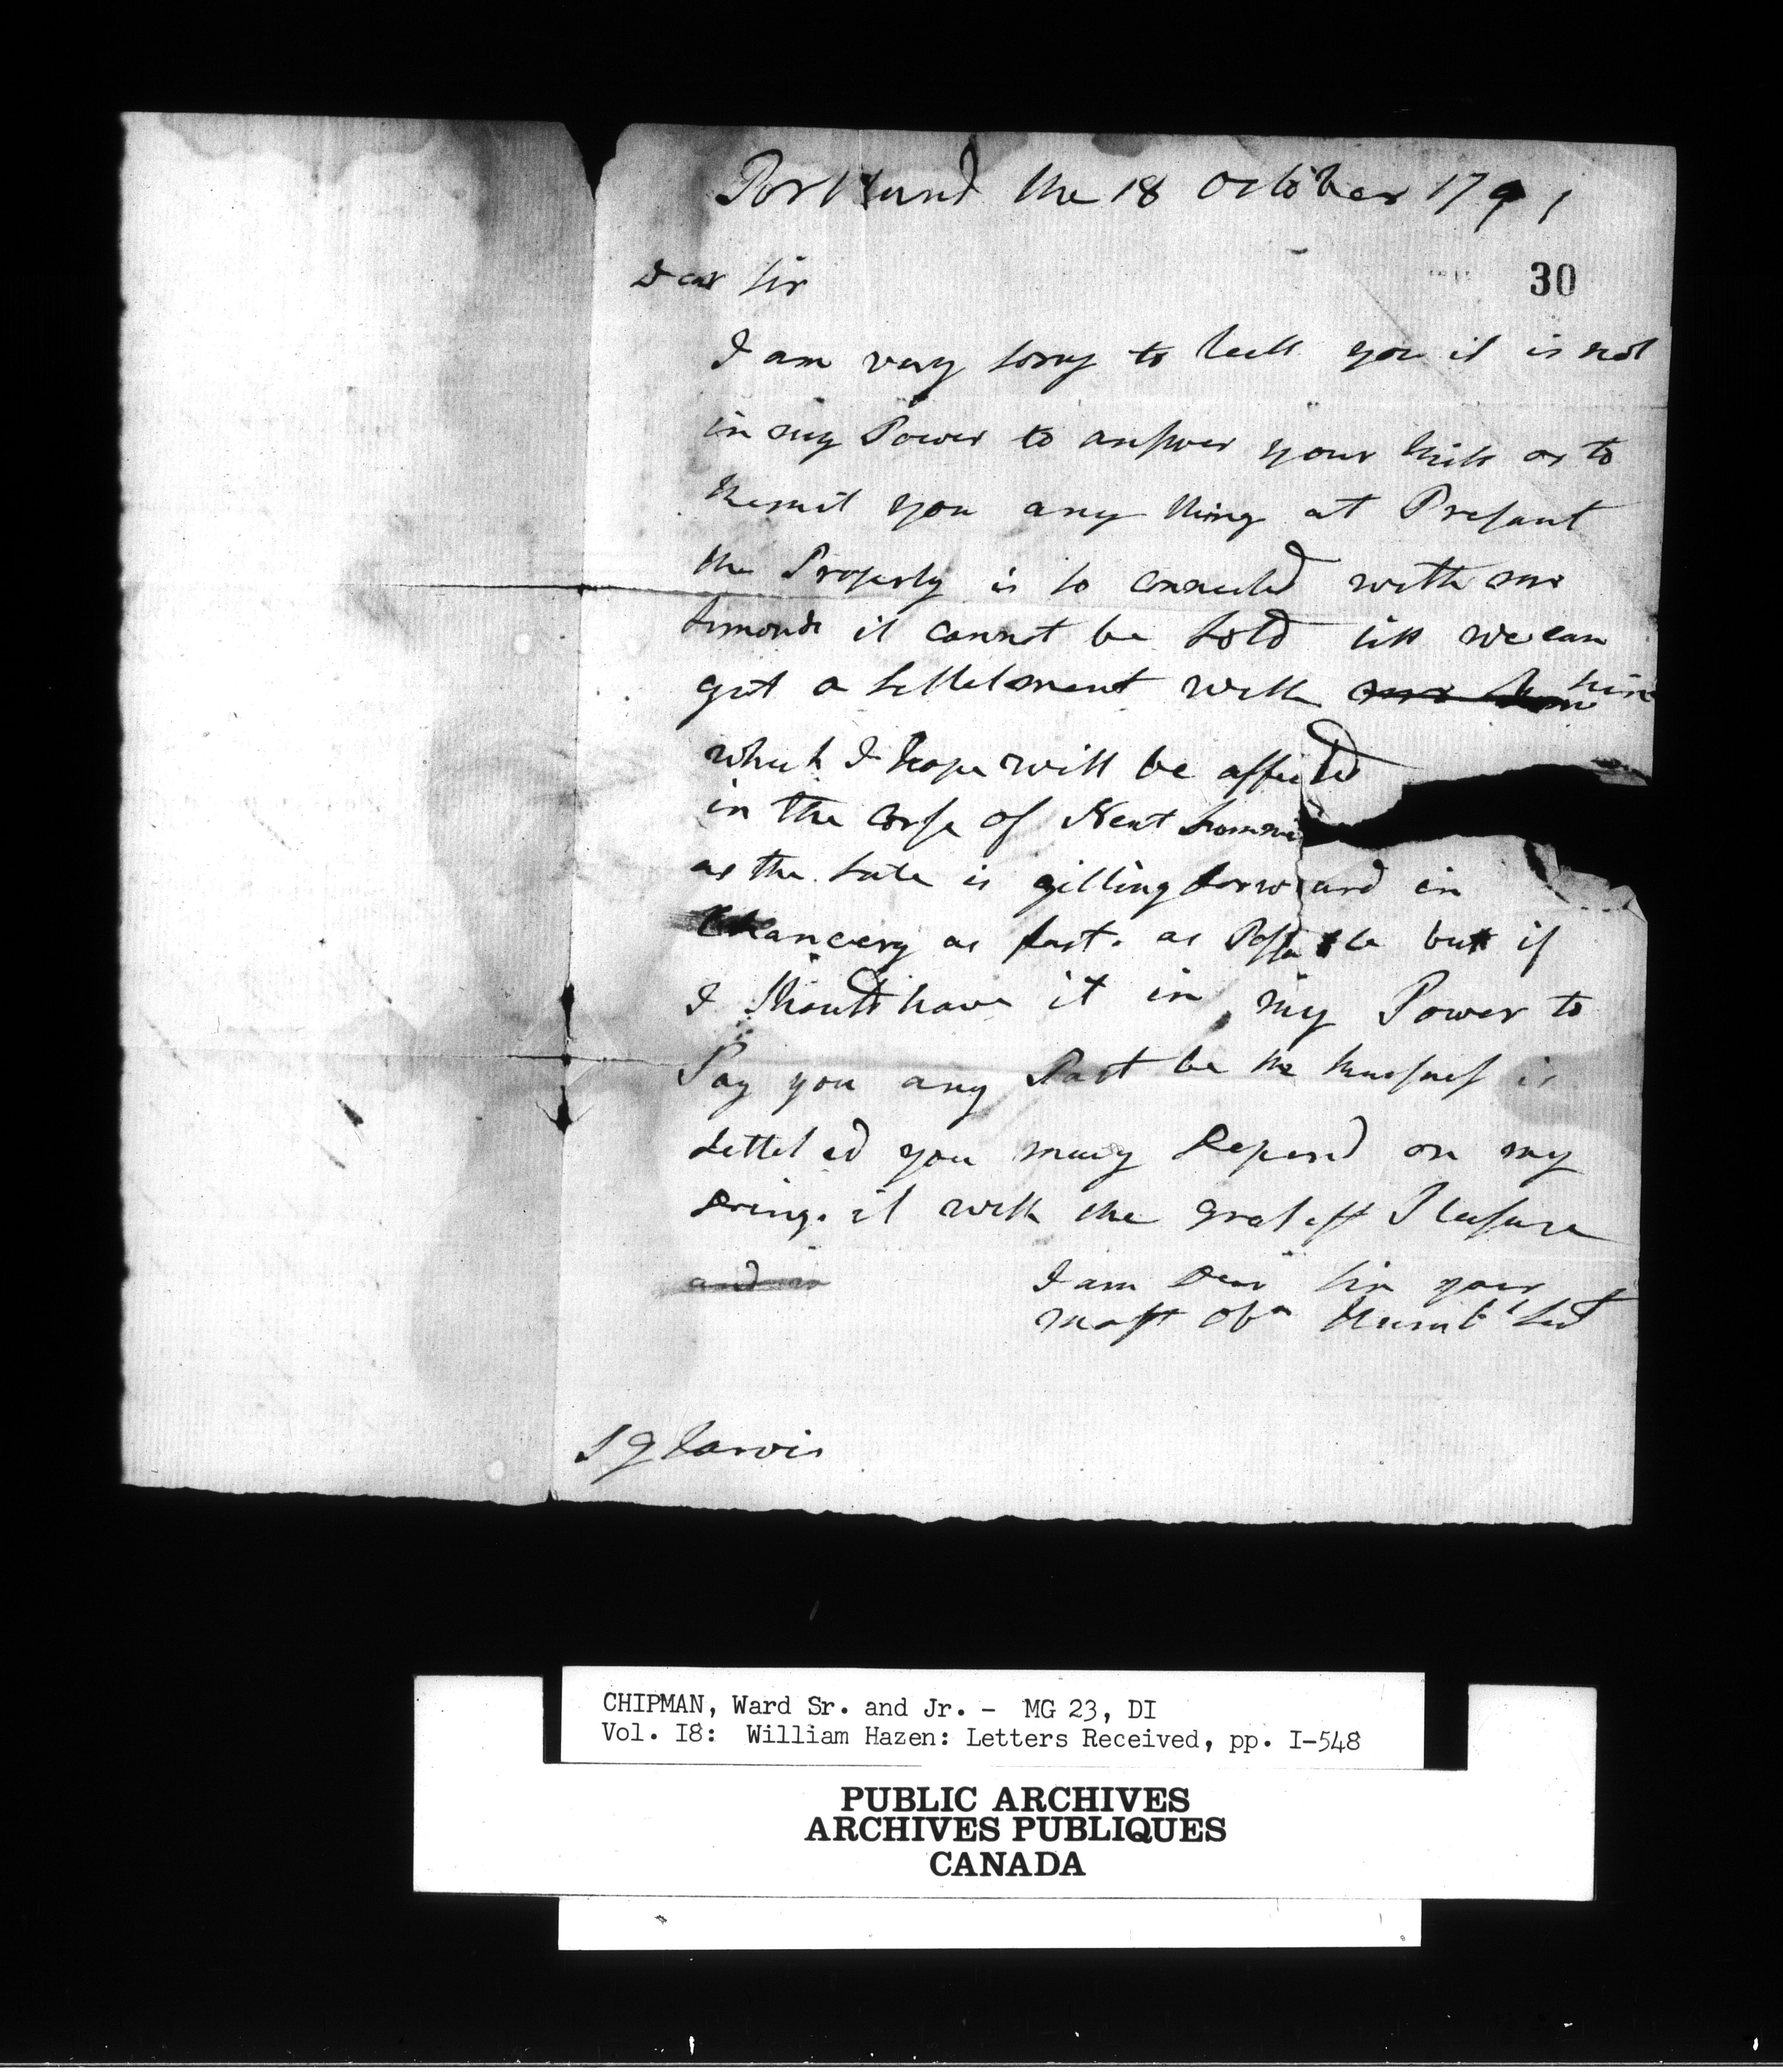 Portland the 18 October 1791
30
Dear Sir
I am very sorry to tell you it is not
in my Power to answer your bill or to
Remit you any thing at Presant
the Property is so connected with mr
Simonds it cannot be Sold till we can
git a Settelment with him
which I hope will be affected
in the Corse of Next Summe
as the Sute is gitting forward in
Chancery as fast as Possable but if
I Should have it in my Power to
Pay you any Part be
Setteled you may Depend on my
Doing it with the Gratest Pleasure
and
I am Dear Sir your
most Obt Humbl Sert
S g Jarvis
CHIPMAN, Ward Sr. and Jr. - MG 23, DI
Vol. I8: William Hazen: Letters Received, pp. I-548
PUBLIC ARCHIVES
ARCHIVES PUBLIQUES
CANADA